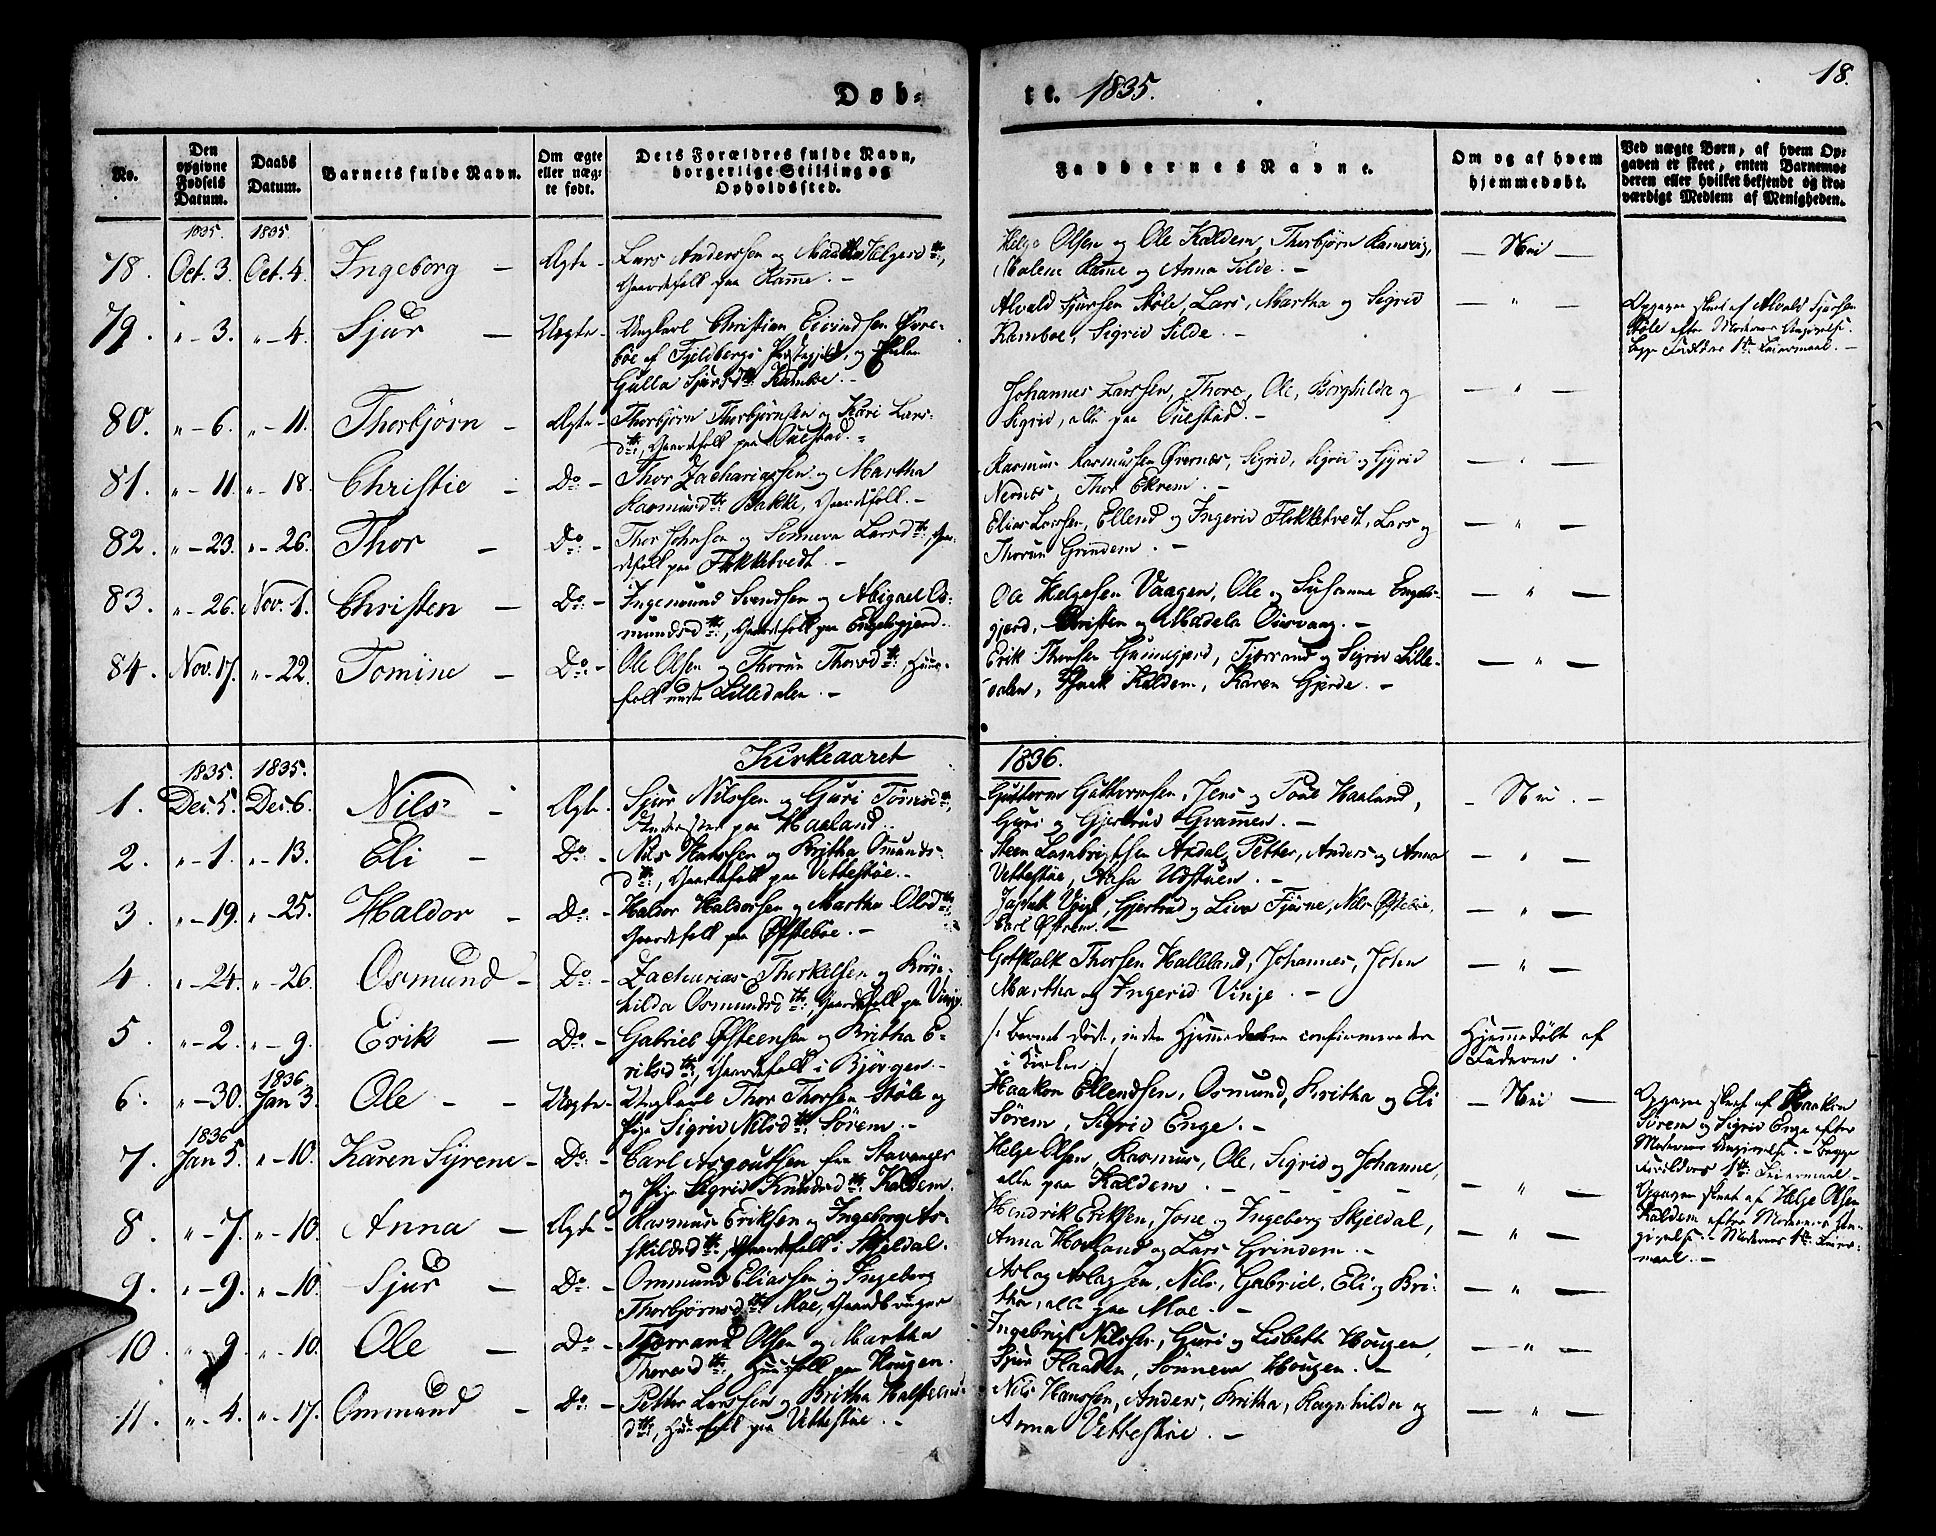 Døb-
te. 1835.
18.
No.
Den opgivne Fødsels Datum.
Daabs Datum.
Barnets fulde Navn.
Om ægte eller uæg-
te født.
Dets Forældres fulde Navn,
borgerlige Stilling og
Opholdssted.
Faddernes Navne.
Om og af hvem
hjemmedøbt.
Ved uægte Børn, af hvem Op-
gaven er skeet, enten Barnemo-
deren eller hvilket bekjendt og tro-
værdigt Medlem af Menigheden.
1835. 1835.
78. Oct. 3. Oct. 4. Ingeborg - Ægte - Lars Anderssen og Martha Helgesd.tr,
Gaardsfolk paa Ramme. -
Helge Olsen og Ole Kaldem, Thorbjørn Ramsvig,
Malene Ramme og Anna Silde. -
- Nei -
79. " - 3. " - 4. Sjur - Uægte - Ungkarl Christian Eivindsen Øvre-
bøe af Fjeldbergs Præstegjeld, og Enken
Gulla Sjursd.tr Ramboe. -
Alvald Sjursen Støle, Lars, Martha og Sigrid
Ramboe, Sigrid Silde. -
- " -
Opgaven skeet af Alvald Sjursen
Støle efter Moderens Angivelse.
Begge Forældres 1ste Leiermaal. -
80. " - 6. " - 11. Thorbjørn - Ægte - Thorbjørn Thorbjørnsen og Kari Lars-
d.tr, Gaardsfolk paa Ouestad. -
Johannes Larssen, Thore, Ole, Borghilda og
Sigrid, alle paa Ouestad. -
- " -
81. " - 11. " - 18. Christie - Do - Thor Zachariassen og Martha
Rasmusd.tr Bakke, Gaardsfolk. -
Rasmus Rasmussen Øvernæs, Sigrid, Sigrid og Gyrid
Nernæs, Thor Ekrem. -
- " -
82. " - 23. " - 26. Thor - Do - Thor Johnsen og Sønneva Larsd.tr, Gaar-
dsfolk paa Flikketvedt. -
Elias Larssen, Ellend og Ingerid Flikketvedt, Lars og
Thorun Grindem. -
- " -
83. " - 26. Nov. 1. Christen - Do - Ingemund Svendsen og Abigael Os-
mundsd.tr, Gaardsfolk paa Engelsgjerd.
Ole Helgesen Vaagen, Ole og Susanne Engels-
gjerd, Christen og Madela Oversvaag. -
- " -
84. Nov. 17. " - 22. Tomine - Do - Ole Olsen og Thorun Thorsd.tr, Huus-
folk under Lilledalen. -
Erik Thorsen Gunnegjerd, Tjerrand og Sigrid Lille-
dalen, Isaak Kaldem, Karen Gjerde. -
- " -
Kirkeaaret 1836.
1835. 1835.
1. Dec. 5. Dec. 6. Nils - Ægte - Sjur Nilssen og Guri Tømesd.tr,
paa Haaland.
Guttorm Guttormsen, Jens og Tone Haaland,
Guri og Gjertrud Gramen. -
- Nei. -
2. " - 1. " - 13. Eli - Do - Nils Hanssen og Britha Omunds-
d.tr, Gaardsfolk paa Vettestøe. -
Steen Lambrigtsen Axdal, Petter, Anders og Anna
Vettestøe, Aasa Udstuen. -
- " -
3. " - 19. " - 25. Haldor - Do - Haldor Haldorsen og Martha Olsd.tr,
Gaardsfolk paa Østebøe. -
Gjertrud og Liva Fjørne, Nils Østebøe,
Carl Østrem. -
- " -
4. " - 24. " - 26. Osmund - Do - Zacharias Thorkelsen og Brøn-
hilda Osmundsd.tr, Gaardsfolk paa Vinje.
Gotskalk Thorsen Halleland, Johannes, John
Martha og Ingerid Vinje. -
- " -
5. " - 2. " - 9. Erik - Do - Gabriel Østeensen og Britha E-
riksd.tr, Gaardsfolk i Bjørgen. -
/: Barnet døde, inden Hjemmedaaben confirmeredes
i Kirken :/
Hjemmedøbt af
Faderen.
1836
6. " - 30. Jan 3. Ole - - Uægte - Ungkarl Thor Thorsen Støle og
Pige Sigrid Nilsd.tr Sørem. -
Haakon Ellendsen, Osmund, Britha og Eli
Sørem, Sigrid Enge. -
- Nei -
Opgaven skeet af Haakon
Sørem og Sigrid Enge efter
Moderens Angivelse. - Begge
Forældres 1ste Leiermaal -
1836
7. Jan 5. " - 10. Karen Syrene - Do - Carl Asgoutsen fra Stavanger
og Pige Sigrid Knudsd.tr Kaldem.
Helge Olsen, Rasmus, Ole, Sigrid og Johanne,
alle paa Kaldem. -
- " -
Opgaven skeet af Helge Olsen
Kaldem efter Moderens An-
givelse. - Moderens 1ste Leier-
maal. -
8. " - 7. " - 10. Anna - Ægte - Rasmus Eriksen og Ingeborg As-
kildsd.tr, Gaardsfolk i Skjeldal.
Hendrik Eriksen, Jone og Ingeborg Skjeldal,
Anna Hovland og Lars Grindem. -
- " -
9. " - 9. " - 10. Sjur - Do - Ommund Eliassen og Ingeborg
Thorbjørnsd.tr Moe, Gaardbruger
Aslag Aslagsen, Nils, Gabriel, Eli og Bri-
tha, alle paa Moe. -
- " -
10. " - 9. " - 10. Ole - Do - Tjerrand Olsen og Martha
Thorsd.tr, Huusfolk paa Hougen.
Ingebrigt Nilssen, Guri og Lisbeth Hougen,
Sjur Flaaden, Sønneva Hougen. -
- " -
11. " - 4. " - 17. Ommund - Do - Petter Larssen og Britha Halsteens-
d.tr, Huusfolk paa Vettestøe. -
Nils Hanssen, Anders, Britha, Ragnhilda og
Anna Vettestøe. -
- " -